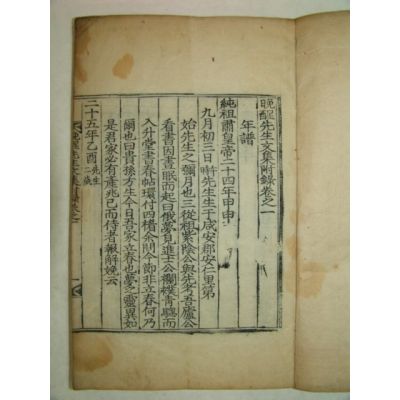 晩醒先生文集附錄卷之一
年譜
純祖肅皇帝二十四年甲申
九月初三日時先生生于咸安郡安仁里第
始先生之彌月也三從祖紫陰公與先考吾廬公
看書因晝眠而起曰俄夢見進士公襴幞青驢而
入升堂書春帖環付四楹余問今節非立春何乃
爾也曰貴孫方生今日吾家立春也夢之靈異如
是君家必有產兆已而侍者報解娩云
二十五年乙酉先生二歲
晩醒先生文集附錄卷之一